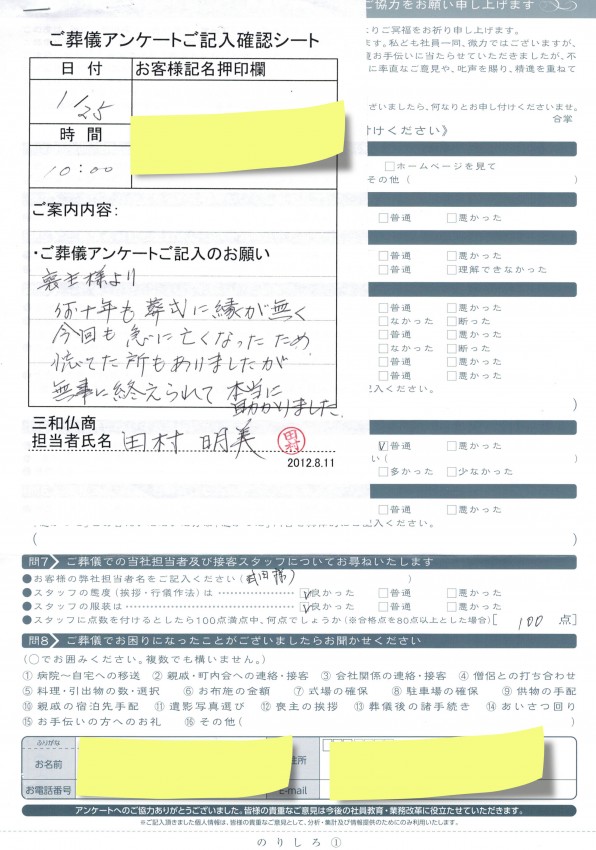 ご協力をお願い申し上げます
ご葬儀アンケートご記入確認シート
日付
お客様記名押印欄
1/25
時間
10:00
ご案内内容:
・ご葬儀アンケートご記入のお願い
喪主様より
何十年も葬式に縁が無く
今回も急に亡くなったため
慌てた所もありましたが
無事に終えられて本当に
助かりました。
三和仏商
担当者氏名 田村 明美
田村
2012.8.11
よりご冥福をお祈り申し上げます。
ます。私ども社員一同、微力ではございますが、
お手伝いに当たらせていただきましたが、不
に率直なご意見や、叱声を賜り、精進を重ねて
ございましたら、何なりとお申し付けくださいませ。
合掌
付けください》
□ホームページを見て
その他(
□普通 □悪かった
□普通 □悪かった
□普通 □理解できなかった
□普通 □悪かった
□なかった □断った
□普通 □悪かった
□なかった □断った
□普通 □悪かった
□普通 □悪かった
記入ください。
)
☑普通 □悪かった
い(
□多かった □少なかった
□普通 □悪かった
( )
問7 ご葬儀での当社担当者及び接客スタッフについてお尋ねいたします
●お客様の弊社担当者名をご記入ください( )
●スタッフの態度(挨拶・行儀作法)は ☑良かった □普通 □悪かった
●スタッフの服装は ☑良かった □普通 □悪かった
●スタッフに点数を付けるとしたら100点満点中、何点でしょうか(※合格点を80点以上とした場合)[ 100 点]
問8 ご葬儀でお困りになったことがございましたらお聞かせください
(○でお囲みください。複数でも構いません。)
①病院〜自宅への移送 ②親戚・町内会への連絡・接客 ③会社関係の連絡・接客 ④僧侶との打ち合わせ
⑤料理・引出物の数・選択 ⑥お布施の金額 ⑦式場の確保 ⑧駐車場の確保 ⑨供物の手配
⑩親戚の宿泊先手配 ⑪遺影写真選び ⑫喪主の挨拶 ⑬葬儀後の諸手続き ⑭あいさつ回り
⑮お手伝いの方へのお礼 ⑯その他( )
ふりがな
お名前
住所
お電話番号
E-mail
アンケートへのご協力ありがとうございました。皆様の貴重なご意見は今後の社員教育・業務改革に役立たせていただきます。
※ご記入頂きました個人情報は、皆様の貴重なご意見として、分析・集計及び情報提供のためにのみ利用いたします。
のりしろ①